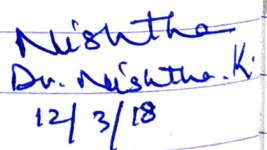 Nishtha
Dr. Nishtha. K.
12/3/18